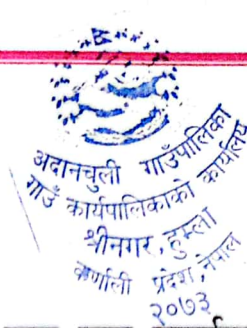 अदानचुली गाउँपालिका
गाउँ कार्यपालिकाको कार्यालय
श्रीनगर, हुम्ला
कर्णाली प्रदेश, नेपाल
२०७३